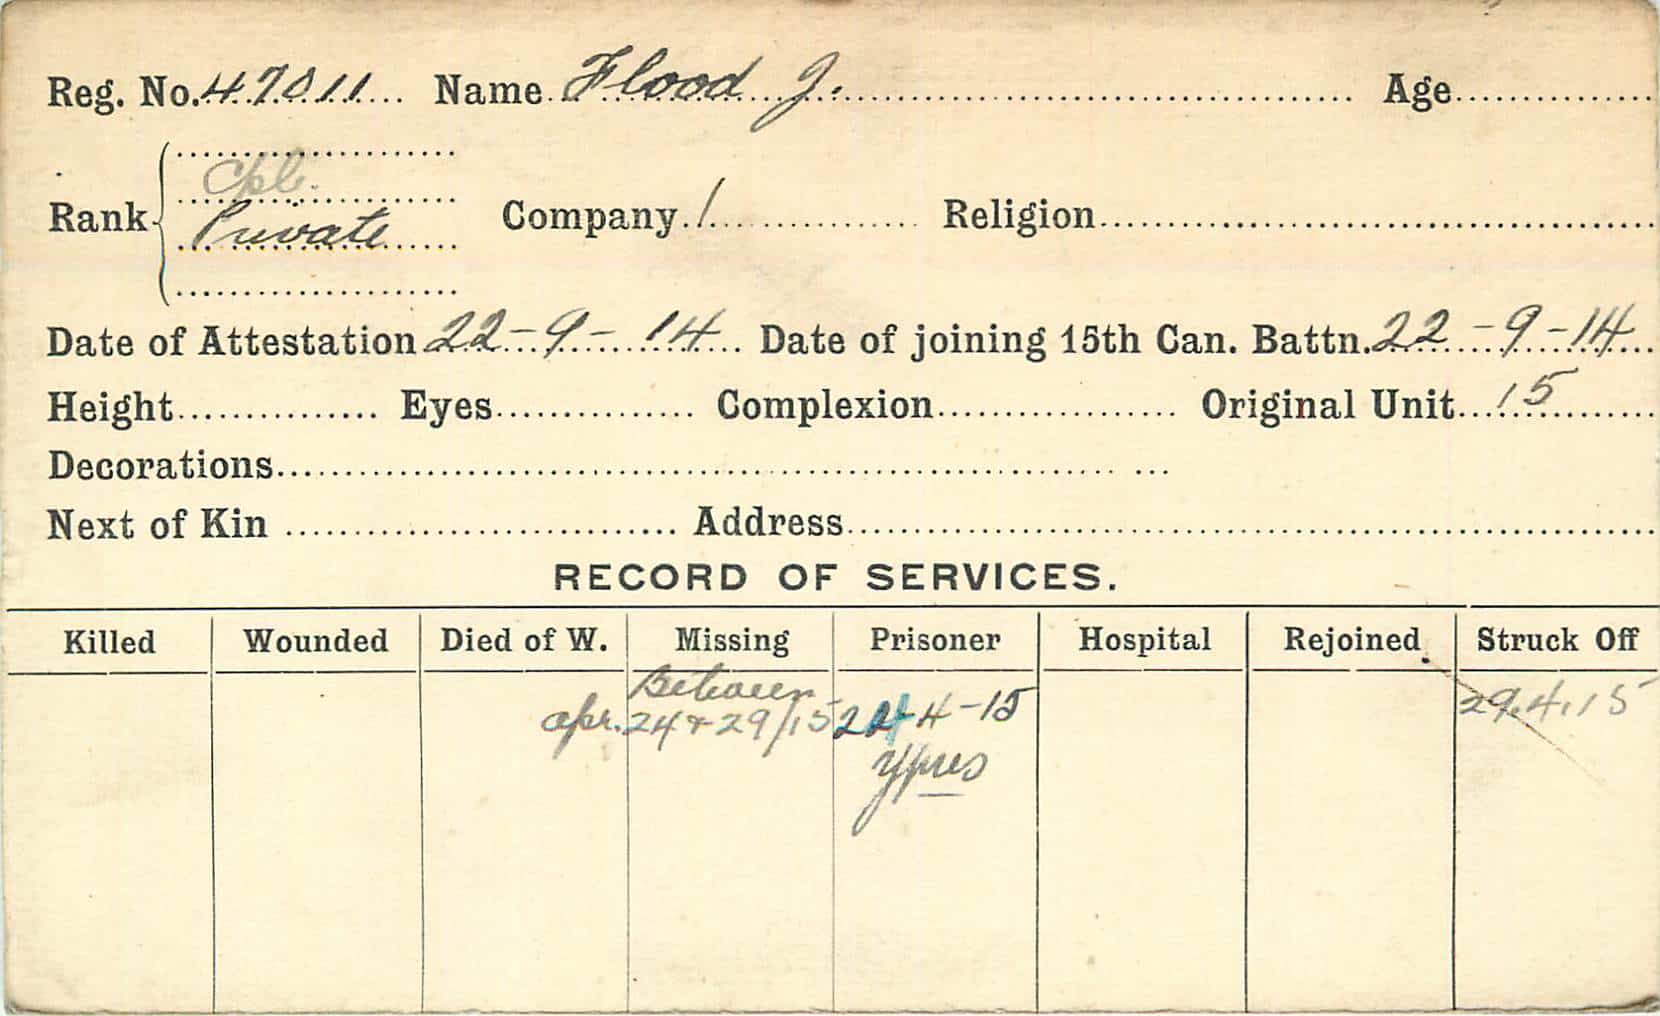 Reg. No. 47011 Name Flood J. Age
Cpl.
Rank Private Company 1 Religion
Date of Attestation 22-9-14 Date of joining 15th Can. Battn. 22-9-14
Height Eyes Complexion Original Unit 15
Decorations
Next of Kin Address
RECORD OF SERVICES.
Killed Wounded Died of W. Missing Prisoner Hospital Rejoined Struck Off
Between
apr. 24 & 29/15 24-4-15 29.4.15
Ypres